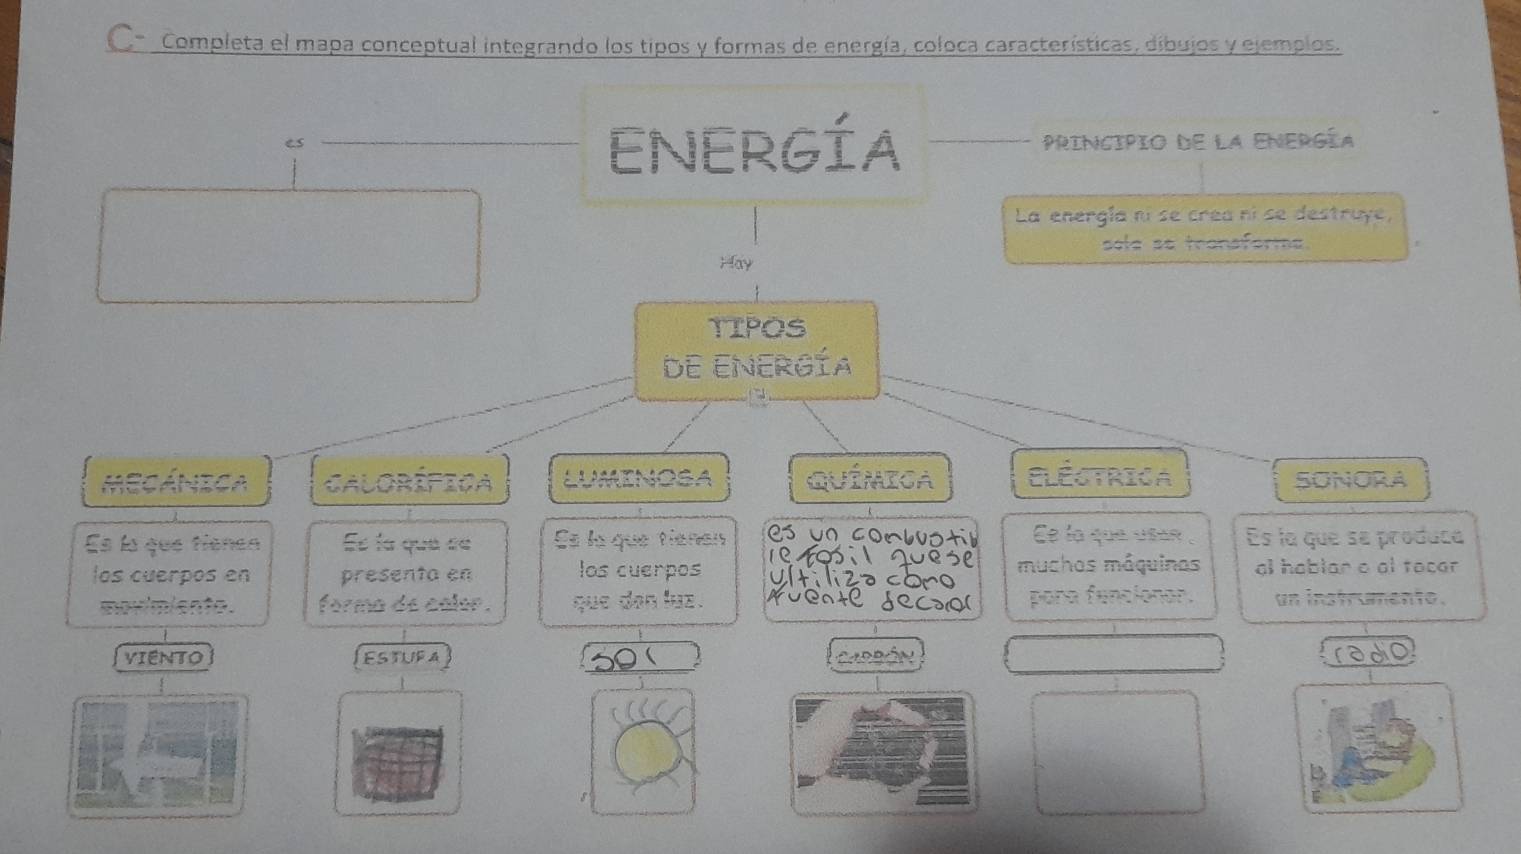 C- Completa el mapa conceptual integrando los tipos y formas de energía, coloca características, dibujos y ejemplos.
es
ENERGÍA
PRINCIPIO DE LA ENERGÍA
La energía ni se crea ni se destruye,
solo se transforma.
Hay
TIPOS
DE ENERGÍA
MECÁNICA
CALORÍFICA
LUMINOSA
QUÍMICA
ELÉCTRICA
SONORA
Es la que tienen
los cuerpos en
movimiento.
Es la que se
presenta en
forma de calor.
Es la que tienen
los cuerpos
que dan luz.
es un combustib
le fosil quese
ultiliza como
fuente de calor
Es la que usan
muchas máquinas
para funcionar.
Es la que se produce
al hablar o al tocar
un instrumento.
VIENTO
ESTUFA
sol
CARBÓN
radio